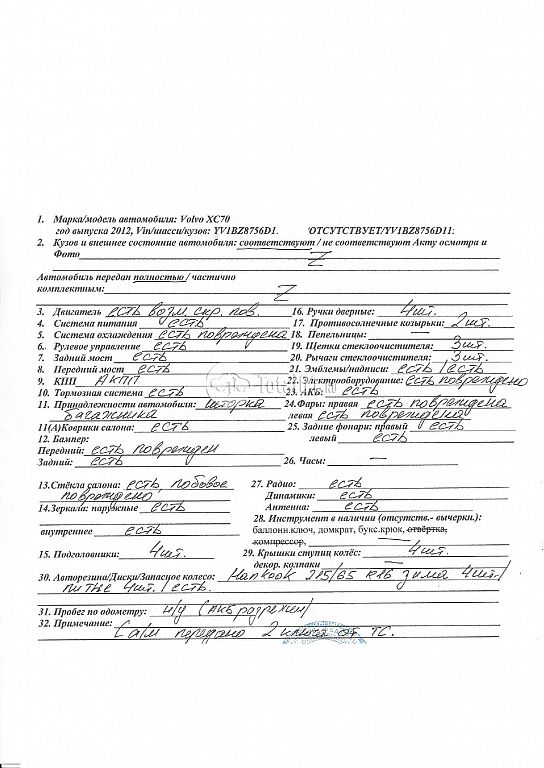 1. Марка/модель автомобиля: Volvo XC70
год выпуска 2012, Vin/шасси/кузов: YV1BZ8756D1. ОТСУТСТВУЕТ/YV1BZ8756D11.
2. Кузов и внешнее состояние автомобиля: соответствуют / не соответствуют Акту осмотра и
Фото Z
Автомобиль передан полностью / частично
комплектным: Z
3. Двигатель есть возм. скр. пов. 16. Ручки дверные: 4шт.
4. Система питания есть 17. Противосолнечные козырьки: 2шт.
5. Система охлаждения есть повреждена 18. Пепельницы:
6. Рулевое управление есть 19. Щетки стеклоочистителя: 3шт.
7. Задний мост есть 20. Рычаги стеклоочистителя: 3шт.
8. Передний мост есть 21. Эмблемы/надписи: есть/есть
9. КПП АКПП 22. Электрооборудование: есть повреждено
10. Тормозная система есть 23. АКБ: есть
11. Принадлежности автомобиля: шторка 24.Фары: правая есть повреждена
багажника левая есть повреждена
11(А)Коврики салона: есть 25. Задние фонари: правый есть
12. Бампер: левый есть
Передний: есть поврежден
Задний: есть 26. Часы: —
13.Стёкла салона: есть, лобовое 27. Радио: есть
повреждено Динамики: есть
14.Зеркала: наружные есть Антенна: есть
28. Инструмент в наличии (отсутств.- вычеркн.):
внутреннее есть баллонн.ключ, домкрат, букс.крюк, отвёртка,
компрессор,
15. Подголовники: 4шт. 29. Крышки ступиц колёс: 4шт.
декор. колпаки —
30. Авторезина/Диски/Запасное колесо: Hankook 215/65 R16 зима 4шт./
литые 4шт./есть.
31. Пробег по одометру: н/у (АКБ разряжен)
32. Примечание: С а/м передано 2 ключа от ТС.